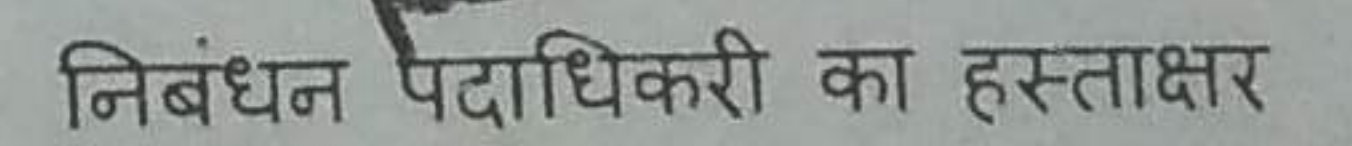 निबंधन पदाधिकरी का हस्ताक्षर